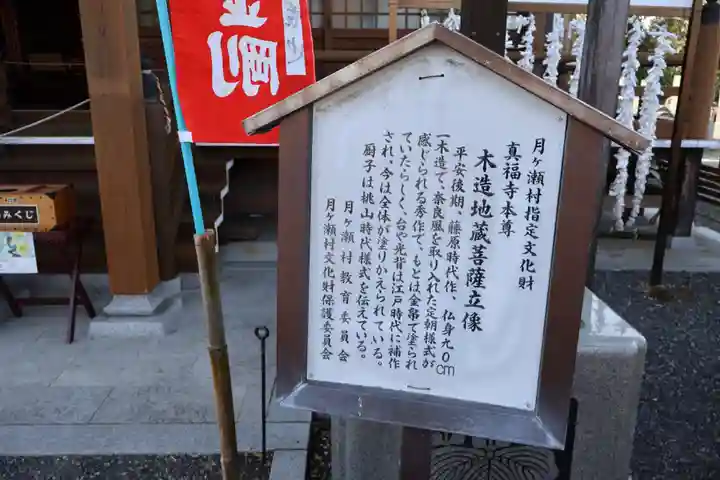 月ヶ瀬村指定文化財
真福寺本尊
木造地蔵菩薩立像
平安後期、藤原時代作、仏身九〇cm
一木造で、奈良風を取り入れた定朝様式が
感じられる秀作で、もとは金箔で塗られ
ていたらしく、台や光背は江戸時代に補作
され、今は全体が塗りかえられている。
厨子は桃山時代様式を伝えている。
月ヶ瀬村教育委員会
月ヶ瀬村文化財保護委員会
剛
みくじ